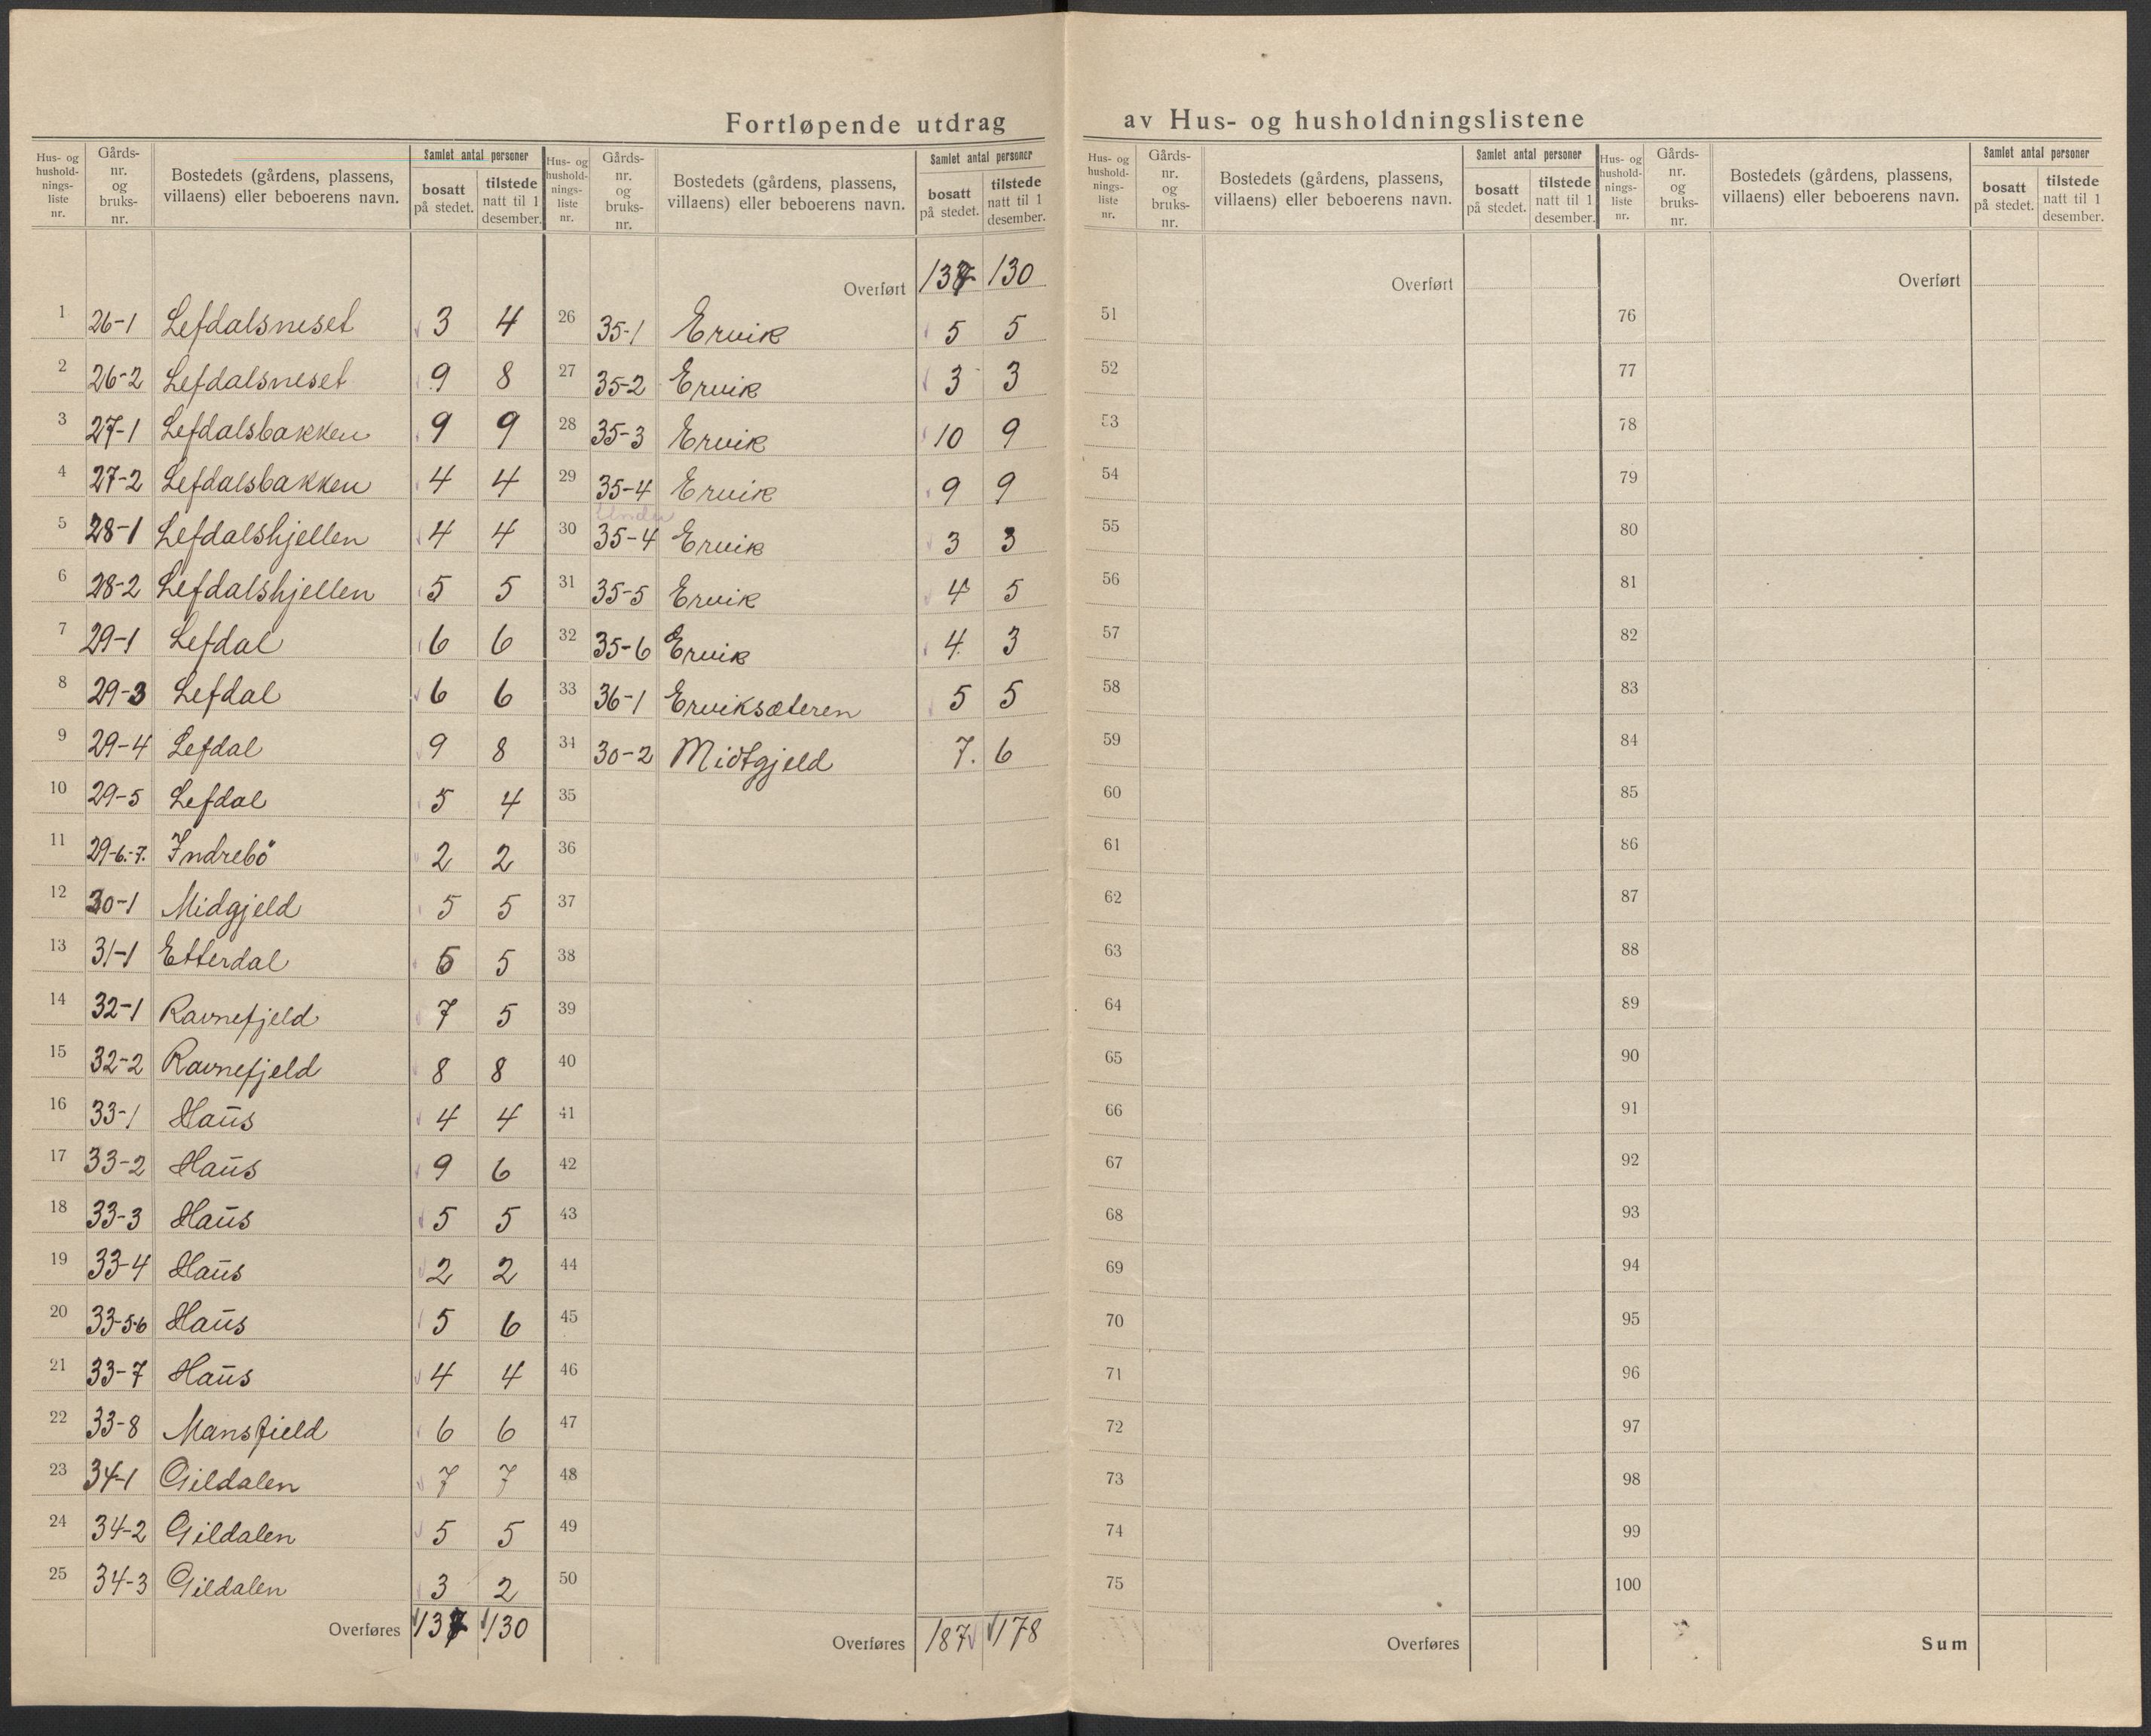 Fortløpende utdrag av Hus- og husholdningslistene
Hus- og hushold-nings-liste nr. Gårds-nr. og bruks-nr. Bostedets (gårdens, plassens, villaens) eller beboerens navn. Samlet antal personer bosatt på stedet. tilstede natt til 1 desember.
1 26-1 Lefdalsneset 3 4
2 26-2 Lefdalsneset 9 8
3 27-1 Lefdalsbakken 9 9
4 27-2 Lefdalsbakken 4 4
5 28-1 Lefdalshjellen 4 4
6 28-2 Lefdalshjellen 5 5
7 29-1 Lefdal 6 6
8 29-3 Lefdal 6 6
9 29-4 Lefdal 9 8
10 29-5 Lefdal 5 4
11 29-6.-7. Indrebö 2 2
12 30-1 Midgjeld 5 5
13 31-1 Etterdal 5 5
14 32-1 Ravnefjeld 7 5
15 32-2 Ravnefjeld 8 8
16 33-1 Haūs 4 4
17 33-2 Haūs 9 6
18 33-3 Haūs 5 5
19 33-4 Haūs 2 2
20 33-5-6 Haūs 5 6
21 33-7 Haūs 4 4
22 33-8 Mansfield 6 6
23 34-1 Gildalen 7 7
24 34-2 Gildalen 5 5
25 34-3 Gildalen 3 2
Overføres 137 130
Hus- og hushold-nings-liste nr. Gårds-nr. og bruks-nr. Bostedets (gårdens, plassens, villaens) eller beboerens navn. Samlet antal personer bosatt på stedet. tilstede natt til 1 desember.
Overført 137 130
26 35-1 Ervik 5 5
27 35-2 Ervik 3 3
28 35-3 Ervik 10 9
29 35-4 Ervik 9 9
Under
30 35-4 Ervik 3 3
31 35-5 Ervik 4 5
32 35-6 Ervik 4 3
33 36-1 Erviksæteren 5 5
34 30-2 Midtgjeld 7. 6
35
36
37
38
39
40
41
42
43
44
45
46
47
48
49
50
Overføres 187 178
Hus- og hushold-nings-liste nr. Gårds-nr. og bruks-nr. Bostedets (gårdens, plassens, villaens) eller beboerens navn. Samlet antal personer bosatt på stedet. tilstede natt til 1 desember.
Overført
51
52
53
54
55
56
57
58
59
60
61
62
63
64
65
66
67
68
69
70
71
72
73
74
75
Overføres
Hus- og hushold-nings-liste nr. Gårds-nr. og bruks-nr. Bostedets (gårdens, plassens, villaens) eller beboerens navn. Samlet antal personer bosatt på stedet. tilstede natt til 1 desember.
Overført
76
77
78
79
80
81
82
83
84
85
86
87
88
89
90
91
92
93
94
95
96
97
98
99
100
Sum